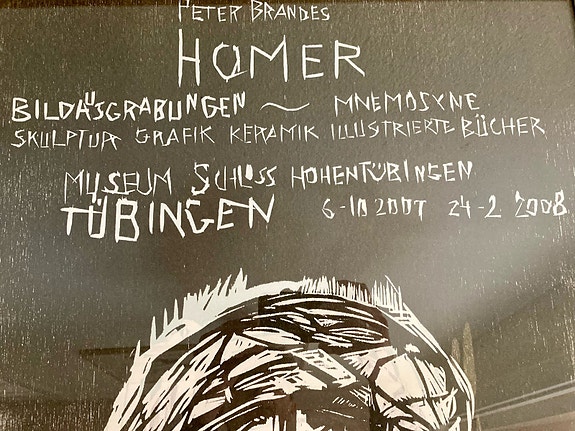 PETER BRANDES
HOMER
BILDAUSGRABUNGEN ~ MNEMOSYNE
SKULPTUR GRAFIK KERAMIK ILLUSTRIERTE BÜCHER
MUSEUM SCHLOSS HOHENTÜBINGEN
TÜBINGEN 6-10 2007 24-2 2008